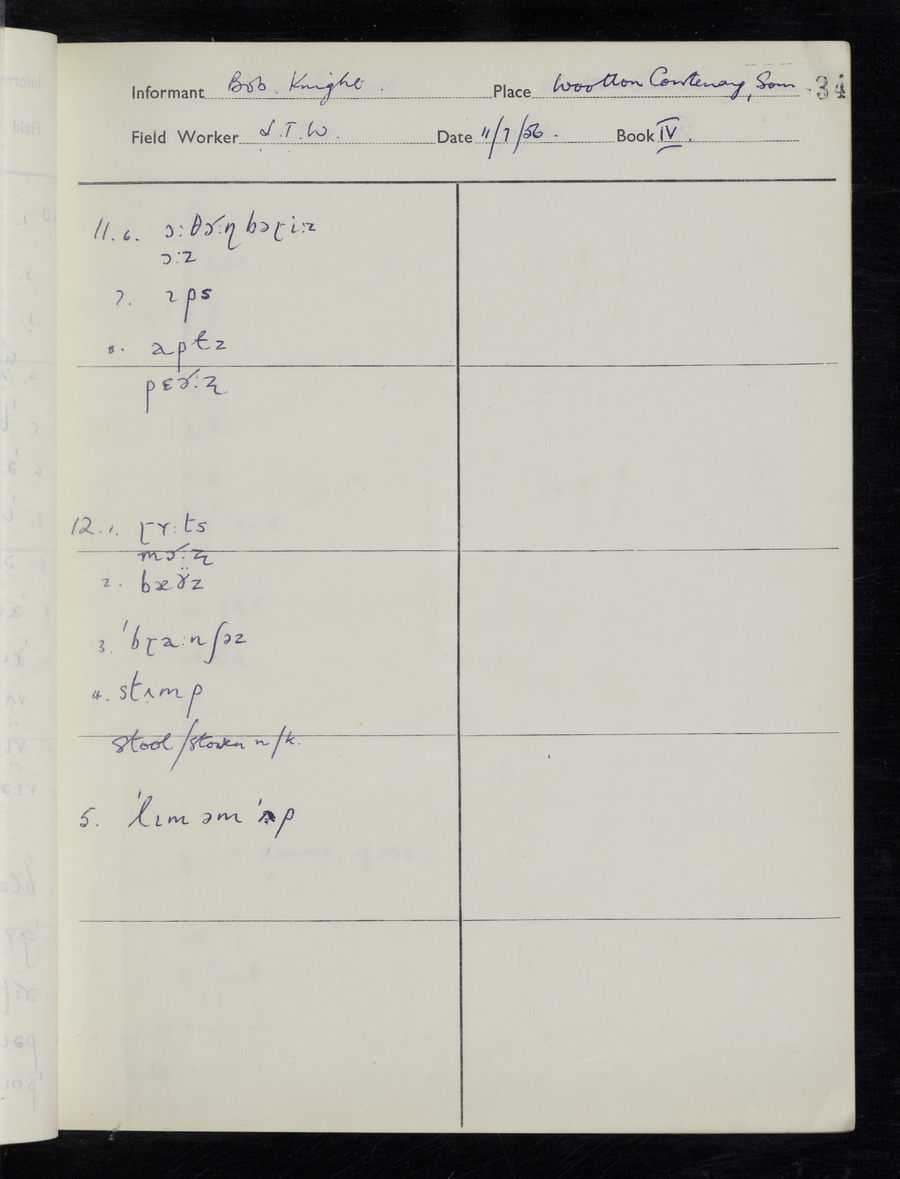 Informant Bob. Knight. Place Wootton Courtenay, Som 34
Field Worker J.T.W. Date 11/7/56. Book IV.
11. 6. ɔ:θɚ:ɳ bəɽi:z
ɔ:z
7. ɪps
8. apt z
pɛɚ:ʐ
12. 1. ɽɤ:ts
mɚ:ʐ
2. bæɤ̈z
3. ˈbɽa:nʃəz
4. stʌmp
stool/stoven n/k.
5. ˈlɪm əm ˈʌp